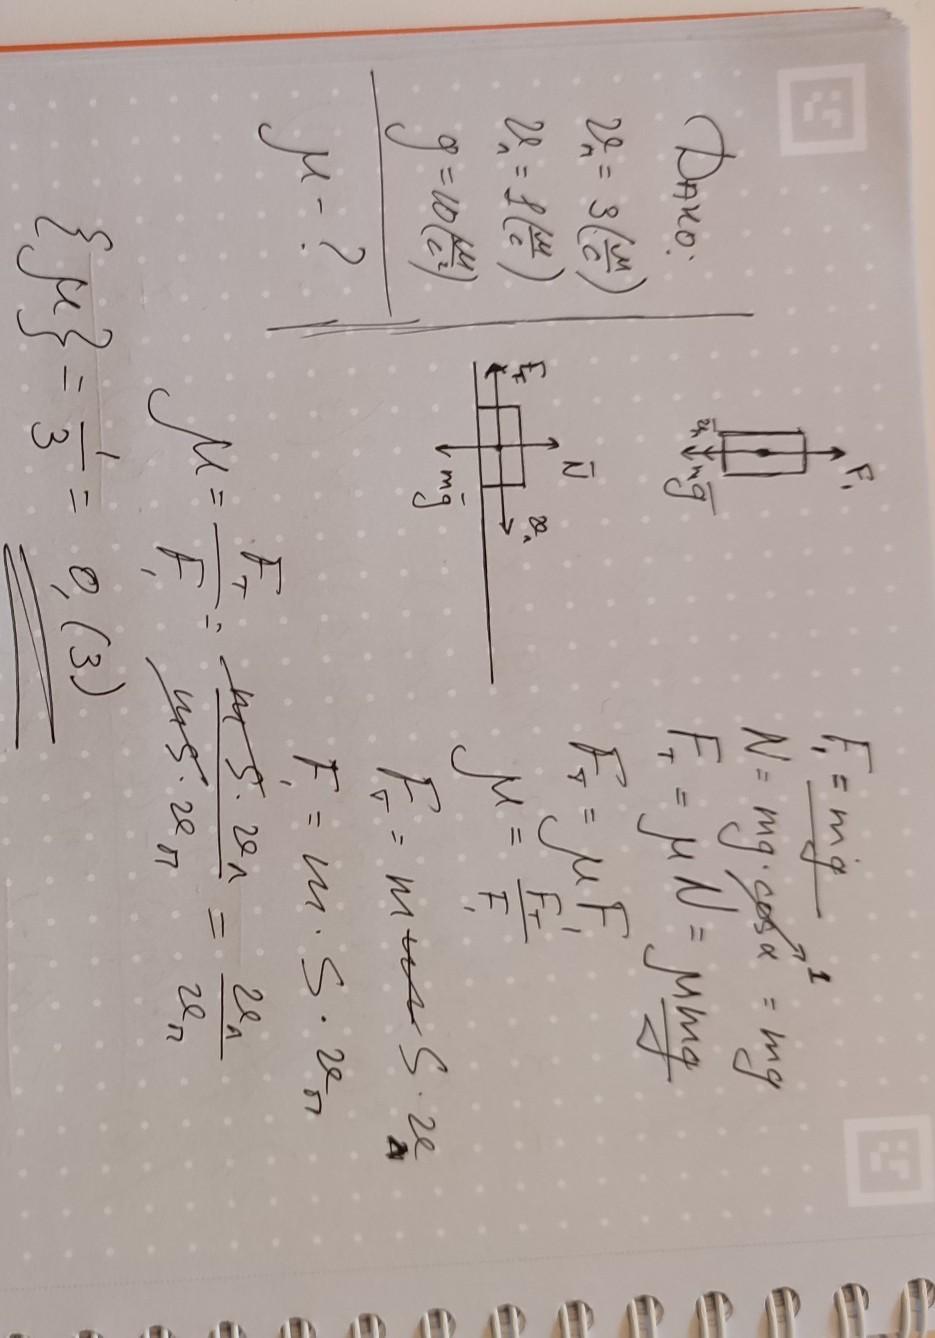 Дано:
υп = 3(м/с)
υл = 1(м/с)
g = 10(м/с²)
μ - ?
F₁
mg
N
Fт
υл
mg
F₁ = mg
N = mg · cosα = mg
1
Fт = μN = μmg
Fт = μF₁
μ = Fт/F₁
Fт = m S · υл
F₁ = m · S · υп
μ = Fт/F₁ = mS·υл/mS·υп = υл/υп
{μ} = 1/3 = 0,(3)